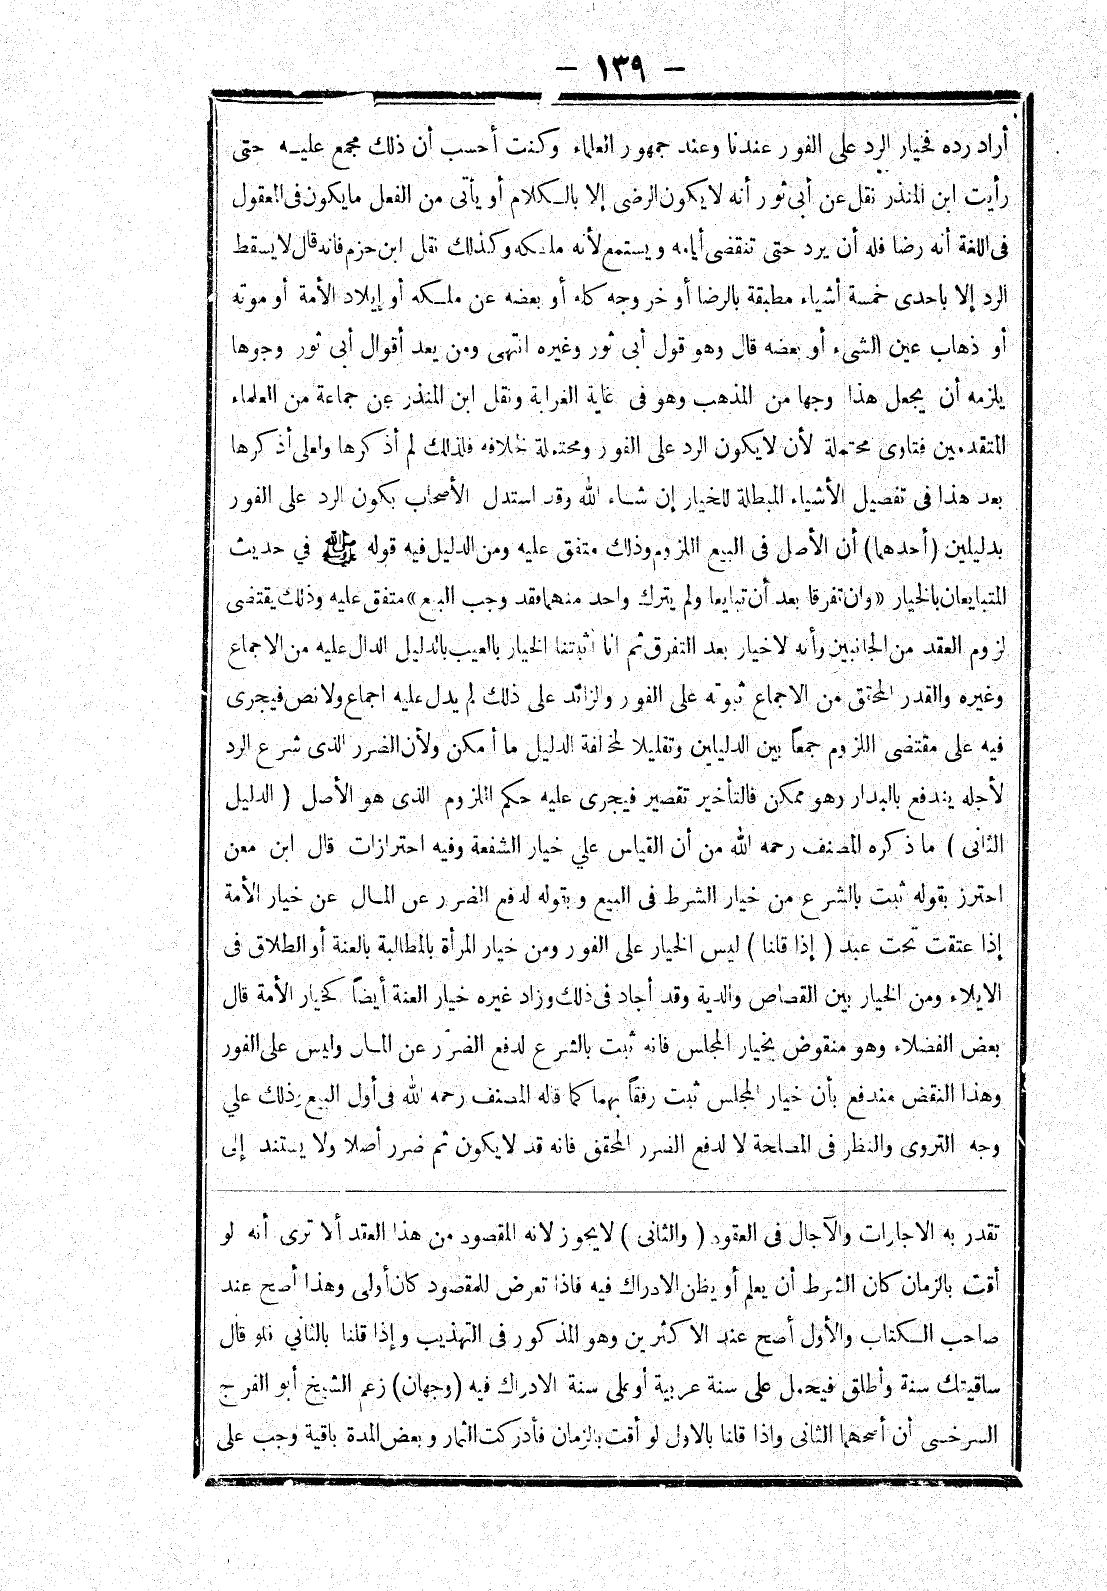 – ١٣٩ –
أراد رده فخيار الرد على الفور عندنا وعند جمهور العلماء وكنت أحسب أن ذلك مجمع عليه حتى
رأيت ابن المنذر نقل عن أبى ثور أنه لا يكون الرضى إلا بالكلام أو يأتى من الفعل مايكون فى المعقول
فى اللغة أنه رضا فله أن يرد حتى تنقضى أيامه ويستمع لأنه ملكه وكذلك نقل ابن حزم فانه قال لا يسقط
الرد إلا باحدى خمسة أشياء مطبقة بالرضا أو خروجه كله أو بعضه عن ملكه أو إيلاد الأمة أو موته
أو ذهاب عين الشىء أو بعضه قال وهو قول أبى ثور وغيره انتهى ومن يعد أقوال أبى ثور وجوها
يلزمه أن يجعل هذا وجها من المذهب وهو فى غاية الغرابة ونقل ابن المنذر عن جماعة من العلماء
المتقدمين فتاوى محتملة لأن لا يكون الرد على الفور ومحتملة خلافه فلذلك لم أذكرها ولعلى أذكرها
بعد هذا فى تفصيل الأشياء المبطلة للخيار إن شاء الله وقد استدل الأصحاب بكون الرد على الفور
بدليلين (أحدهما) أن الأصل فى البيع اللزوم وذلك متفق عليه ومن الدليل فيه قوله ﷺ في حديث
المتبايعان بالخيار «وان تفرقا بعد أن تبايعا ولم يترك واحد منهما فقد وجب البيع» متفق عليه وذلك يقتضى
لزوم العقد من الجانبين وأنه لا خيار بعد التفرق ثم انا أثبتنا الخيار بالعيب بالدليل الدال عليه من الاجماع
وغيره والقدر المحقق من الاجماع ثبوته على الفور والزائد على ذلك لم يدل عليه اجماع ولا نص فيجرى
فيه على مقتضى اللزوم جمعاً بين الدليلين وتقليلا لمخالفة الدليل ما أمكن ولأن الضرر الذى شرع الرد
لأجله يندفع بالبدار وهو ممكن فالتأخير تقصير فيجرى عليه حكم اللزوم الذى هو الأصل ( الدليل
الثانى ) ما ذكره المصنف رحمه الله من أن القياس علي خيار الشفعة وفيه احترازات قال ابن معن
احترز بقوله ثبت بالشرع من خيار الشرط فى البيع وبقوله لدفع الضرر عن المال عن خيار الأمة
إذا عتقت تحت عبد ( إذا قلنا ) ليس الخيار على الفور ومن خيار المرأة بالمطالبة بالعنة أو الطلاق فى
الايلاء ومن الخيار بين القصاص والدية وقد أجاد فى ذلك وزاد غيره خيار العنة أيضاً كخيار الأمة قال
بعض الفضلاء وهو منقوض بخيار المجلس فانه ثبت بالشرع لدفع الضرر عن المال وليس على الفور
وهذا النقض مندفع بأن خيار المجلس ثبت رفقاً بهما كما قاله المصنف رحمه الله فى أول البيع وذلك علي
وجه التروى والنظر فى المصلحة لا لدفع الضرر المحقق فانه قد لا يكون ثم ضرر أصلا ولا يستند إلى
تقدر به الاجارات والآجال فى العقود ( والثانى ) لا يجوز لانه المقصود من هذا العقد ألا ترى أنه لو
أقت بالزمان كان الشرط أن يعلم أو يظن الادراك فيه فاذا تعرض للمقصود كان أولى وهذا أصح عند
صاحب الكتاب والأول أصح عند الاكثرين وهو المذكور فى التهذيب وإذا قلنا بالثاني فلو قال
ساقيتك سنة وأطلق فيحمل على سنة عربية أو على سنة الادراك فيه (وجهان) زعم الشيخ أبو الفرج
السرخسى أن أصحهما الثانى واذا قلنا بالاول لو أقت بالزمان فأدركت الثمار وبعض المدة باقية وجب على